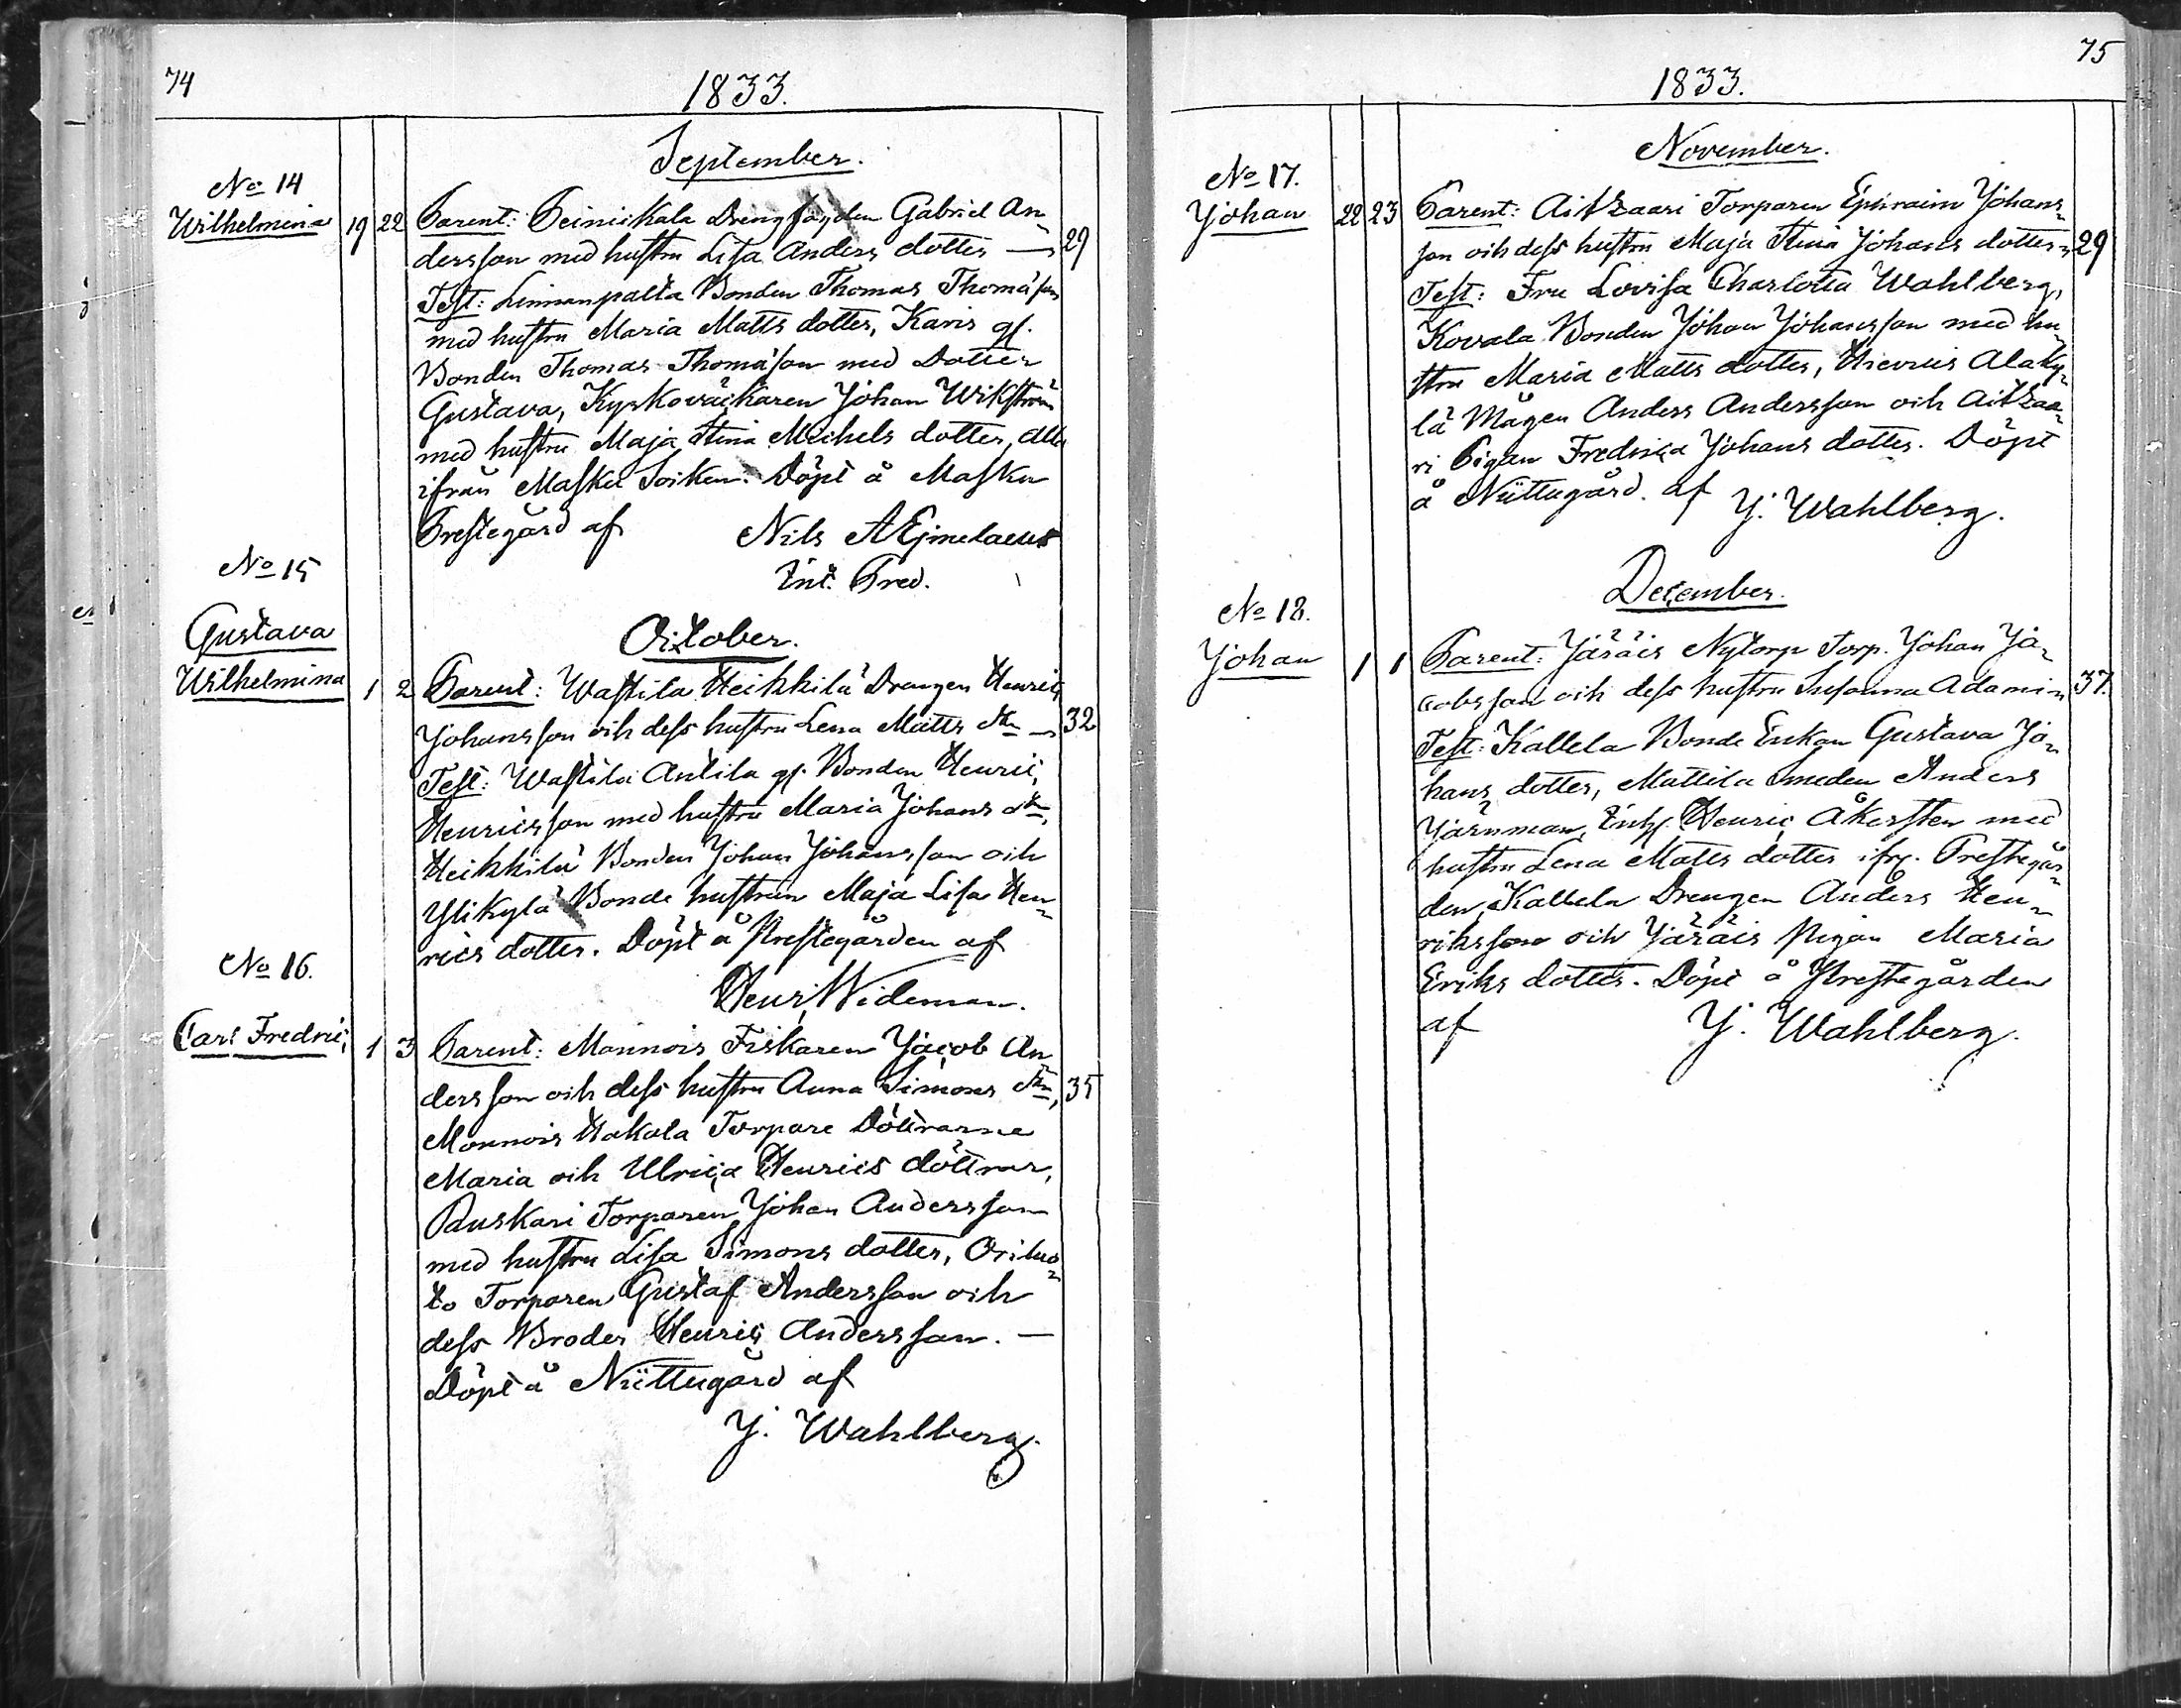 74
1833.
September.
No 14
Wilhelmina 19 22 Parent: Peinickala Drengfogden Gabriel An
dersson med hustru Lisa Anders dotter — 29
Test: Linnanpalta Bonden Thomas Thomasson
med hustru Maria Matts dotter, Karis gl.
Bonden Thomas Thomasson med Dotter
Gustava, Kyrkoväcktaren Johan Wikström
med hustru Maja Stina Michels dotter, alla
ifrån Masku Soiken. Döpt å Masku
Prestegård af Nils A Ejmelaeus
Ext. Pred.
No 15
Gustava
Wilhelmina
October.
1 2 Parent: Wastila Heikkilä Drengen Henric
Johansson och dess hustru Lena Matts dtr — 32
Test: Wastila Antila gl. Bonden Henric
Henricsson med hustru Maria Johans dtr,
Heikkilä Bonden Johan Johansson och
Ylikylä Bonde hustrun Maja Lisa Hen
rics dotter. Döpt å Prestegården af
Henr. Wideman.
No 16.
Carl Fredric 1 3 Parent: Monnois Fiskaren Jacob An
dersson och dess hustru Anna Simons dtr, 35
Monnois Hakala Torpare Döttrarne
Maria och Ulrica Henrics döttrar,
Pauskari Torparen Johan Andersson
med hustru Lisa Simons dotter, Oriluo
to Torparen Gustaf Andersson och
dess Broder Henric Andersson. —
Döpt å Niittugård af
J. Wahlberg.
75
1833.
November.
No 17.
Johan 22 23 Parent: Aitzaari Torparen Ephraim Johans
son och dess hustru Maja Stina Johans dotter 29
Test: Fru Lovisa Charlotta Wahlberg,
Kovala Bonden Johan Johansson med hu
stru Maria Matts dotter, Hievois Alaky
lä Mågen Anders Andersson och Aitzaa
ri Pigan Fredrica Johans dotter. Döpt
å Niittugård. af J. Wahlberg.
December.
No 18.
Johan 1 1 Parent: Järäis Nytorp Torp. Johan Ja
cobsson och dess hustru Susanna Adami 37.
Test: Kallela Bonde Enkan Gustava Jo
hans dotter, Mattila Smeden Anders
Järnman, Henric Åkersten med
hustru Lena Matts dotter ifr. Prestegår
den, Kallela Drengen Anders Hen
riksson och Järäis pigan Maria
Eriks dotter. Döpt å Prestegården
af J. Wahlberg.